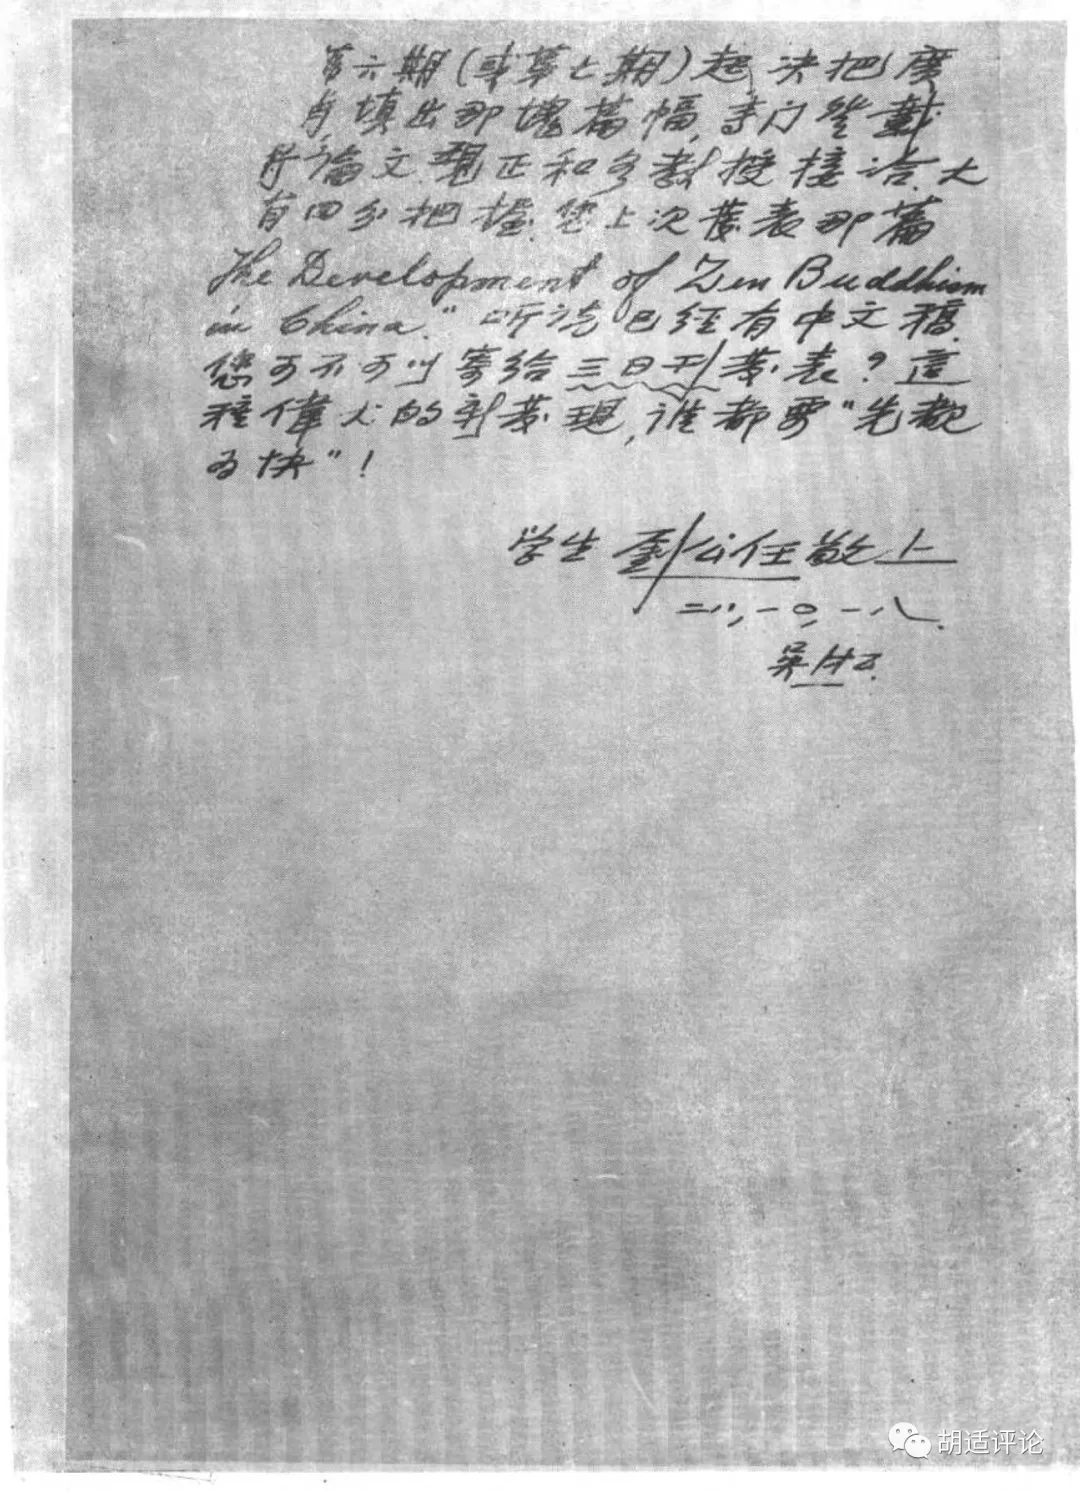 第六期(或第七期)起决把广
告填出那塊篇幅,專门登載
論文.現正和各教授接洽.大
有四分把握.您上次發表那篇
The Development of Zen Buddhism
in China." 听说已经有中文稿.
您可不可以寄给三日刊發表?這
種偉大的新發現,谁都要"先覩
为快"!
学生 劉公任敬上
一〇,一八.
吴淞.
胡适评论